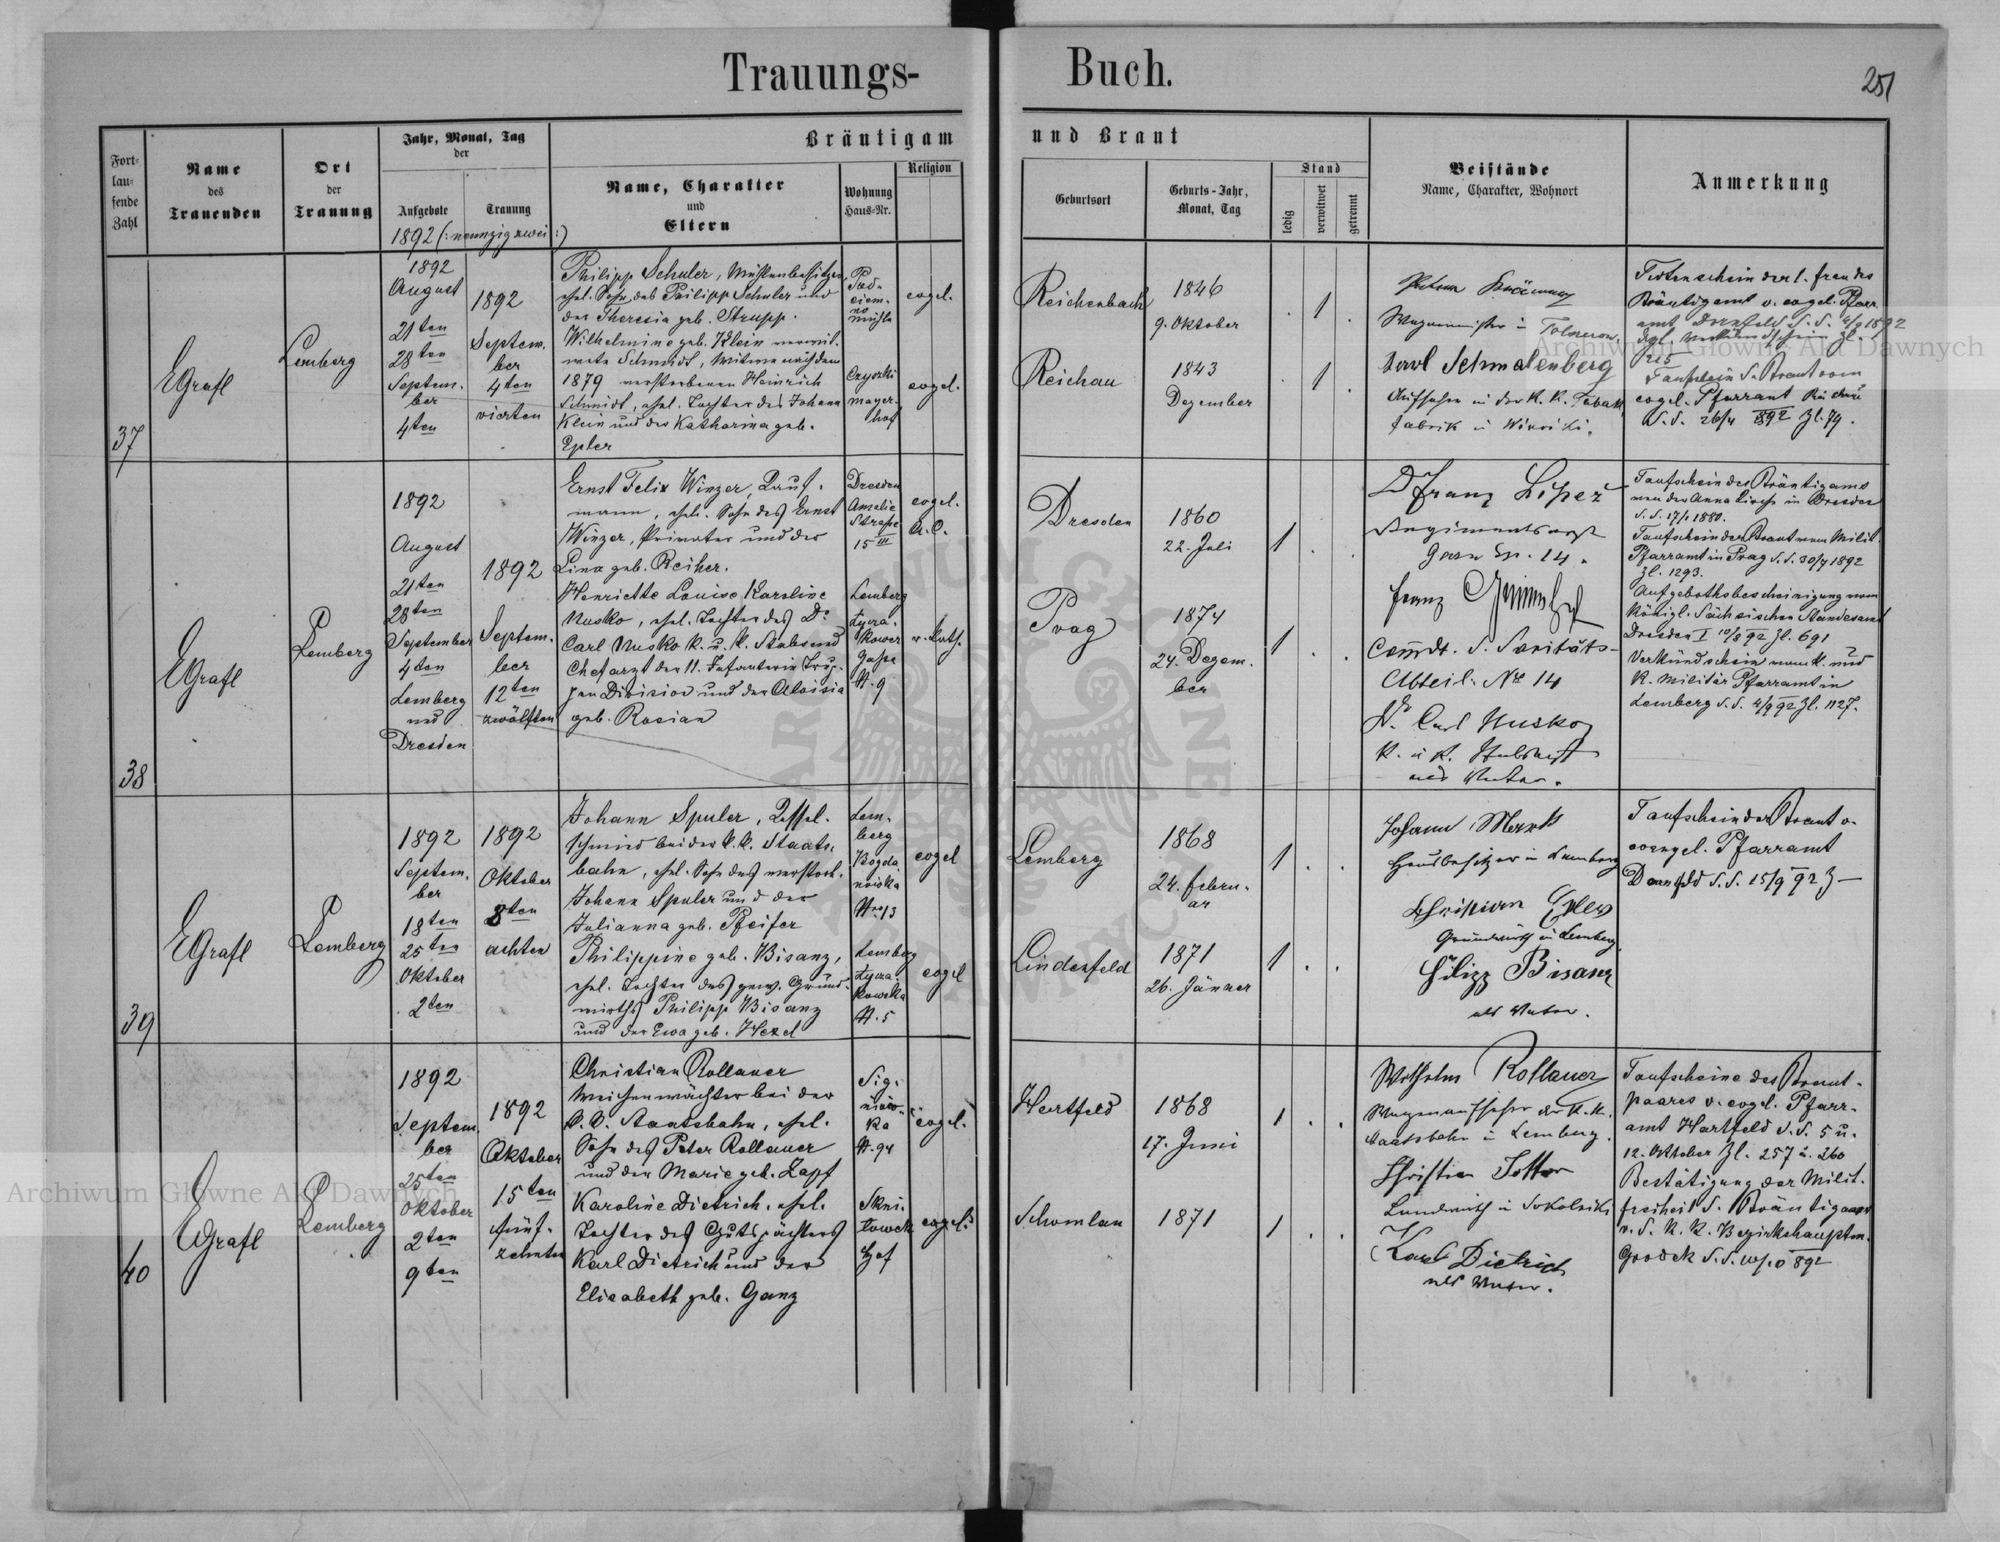 Trauungs-
Buch.
251
Fort-
lau-
fende
Zahl
Name
des
Trauenden
Ort
der
Trauung
Jahr, Monat, Tag
der
Aufgebote
Trauung
Bräutigam
Name, Charakter
und
Eltern
Wohnung
Haus-Nr.
Religion
und Braut
Geburtsort
Geburts-Jahr,
Monat, Tag
Stand
ledig
verwitwet
getrennt
Beistände
Name, Charakter, Wohnort
Anmerkung
1892 (: neunzigzwei :)
37
EGrafl
Lemberg
1892
August
21ten
28ten
Septem-
ber
4ten
1892
Septem-
ber
4ten
vierten
Philipp Schuler, Mühlenbesitzer,
ehel. Sohn des Philipp Schuler und
der Theresia geb. Strupp.
Wilhelmine geb. Klein verwit-
wete Schmidt, Witwe nach dem
1879 verstorbenen Heinrich
Schmidt, ehel. Tochter des Johann
Klein und der Katharina geb.
Epler
Czyszki
mayer-
hof
evgel.
evgel.
Reichenbach
1846
9. Oktober
1
Reichau
1843
Dezember
1
Wagenmeister in
Karl Schmalenberg
Aufseher in der K. K. Tabak
fabrik in Winniki.
Totenschein der l. Frau des
Bräutigams v. evgel. Pfarr
amt Dornfeld d. d. 4/9 1892
215
Taufschein d. Braut vom
evgel. Pfarramt
d. d. 26/4 892 Zl. 79.
38
EGrafl
Lemberg
1892
August
21ten
28ten
September
4ten
Lemberg
und
Dresden
1892
Septem-
ber
12ten
zwölften
Ernst Felix Winzer, Kauf-
mann, ehel. Sohn des Ernst
Winzer, Privater und der
Lina geb. Reiher.
Henriette Louise Karoline
Nusko, ehel. Tochter des Dr
Carl Nusko K. u. K. Stabs und
Chefarzt der 11. Infanterie Trup-
pen Division und der Aloisia
geb. Rosian
Dresden
Amalie
Straße
15 III
Lemberg
Lycza-
kower
Gasse
N. 9
evgel.
A. C.
r. kath.
Dresden
1860
22. Juli
1
Prag
1874
24. Dezem-
ber
1
Dr Franz
Regimentsarzt
Garn Sp. 14.
Franz
Comdt. d. Sanitäts-
Abteil. No 14
Dr. Carl Nusko
K. u. K. Stabsarzt
als Vater.
Taufschein des Bräutigams
von der Anna Kirche in Dresden
d. d. 17/1 1880.
Taufschein der Braut vom Milit.
Pfarramt in Prag d. d. 30/7 1892
Zl. 1293.
Aufgebothsbescheinigung vom
Königl. Sächsischen Standesamt
Dresden I 10/9 92 Zl. 691
Verkündschein vom K. und
K. Militär Pfarramt in
Lemberg d. d. 4/9 92 Zl. 1127.
39
EGrafl
Lemberg
1892
Septem-
ber
18ten
25ten
Oktober
2ten
1892
Oktober
8ten
achten
Johann Spuler, Kessel-
schmied bei der k. k. Staats-
bahn, ehel. Sohn des verstorb.
Johann Spuler und der
Julianna geb. Pfeifer
Philippine geb. Bisanz,
ehel. Tochter des gew. Grund-
wirths Philipp Bisanz
und der Ewa geb. Hexel
Lem-
berg
Bogda
nówka
Nro 13
Lemberg
Lycza-
kowska
N. 5
evgel
evgel
Lemberg
1868
24. Febru-
ar
1
Lindenfeld
1871
26. Jänner
1
Johann Mark
Hausbesitzer in Lemberg
Christian Epler
Grundwirth in Lemberg
Filipp Bisanz
als Vater.
Taufschein der Braut v.
evengel. Pfarramt
Dornfeld d. d. 15/9 92
40
EGrafl
Lemberg
1892
Septem-
ber
25ten
Oktober
2ten
9ten
1892
Oktober
15ten
fünf-
zehnten
Christian Rollauer
Weichenwächter bei der
k. k. Staatsbahn, ehel.
Sohn des Peter Rollauer
und der Marie geb. Zapf
Karoline Dietrich, ehel.
Tochter des Gutspächters
Karl Dietrich und der
Elisabeth geb. Ganz
Sig-
niów-
ka
N. 94
Skni-
lowek
Hof
evgel.
evgel.
Hartfeld
1868
17. Juni
1
Schomlau
1871
1
Wilhelm Rollauer
Wagenaufseher der K. K.
Staatsbahn in Lemberg.
Christian
Landwirth in Sokolniki
Karl Dietrich
als Vater.
Taufscheine des Braut-
paares v. evgel. Pfarr-
amt Hartfeld d. d. 5 u.
12. Oktober Zl. 257 u. 260
Bestätigung der Milit.
freiheit d. Bräutigams
v. d. K. K. Bezirkshauptm.
Grodek d. d.
Archiwum Główne Akt Dawnych
Archiwum Główne Akt Dawnych
ARCHIWUM GŁÓWNE AKT DAWNYCH